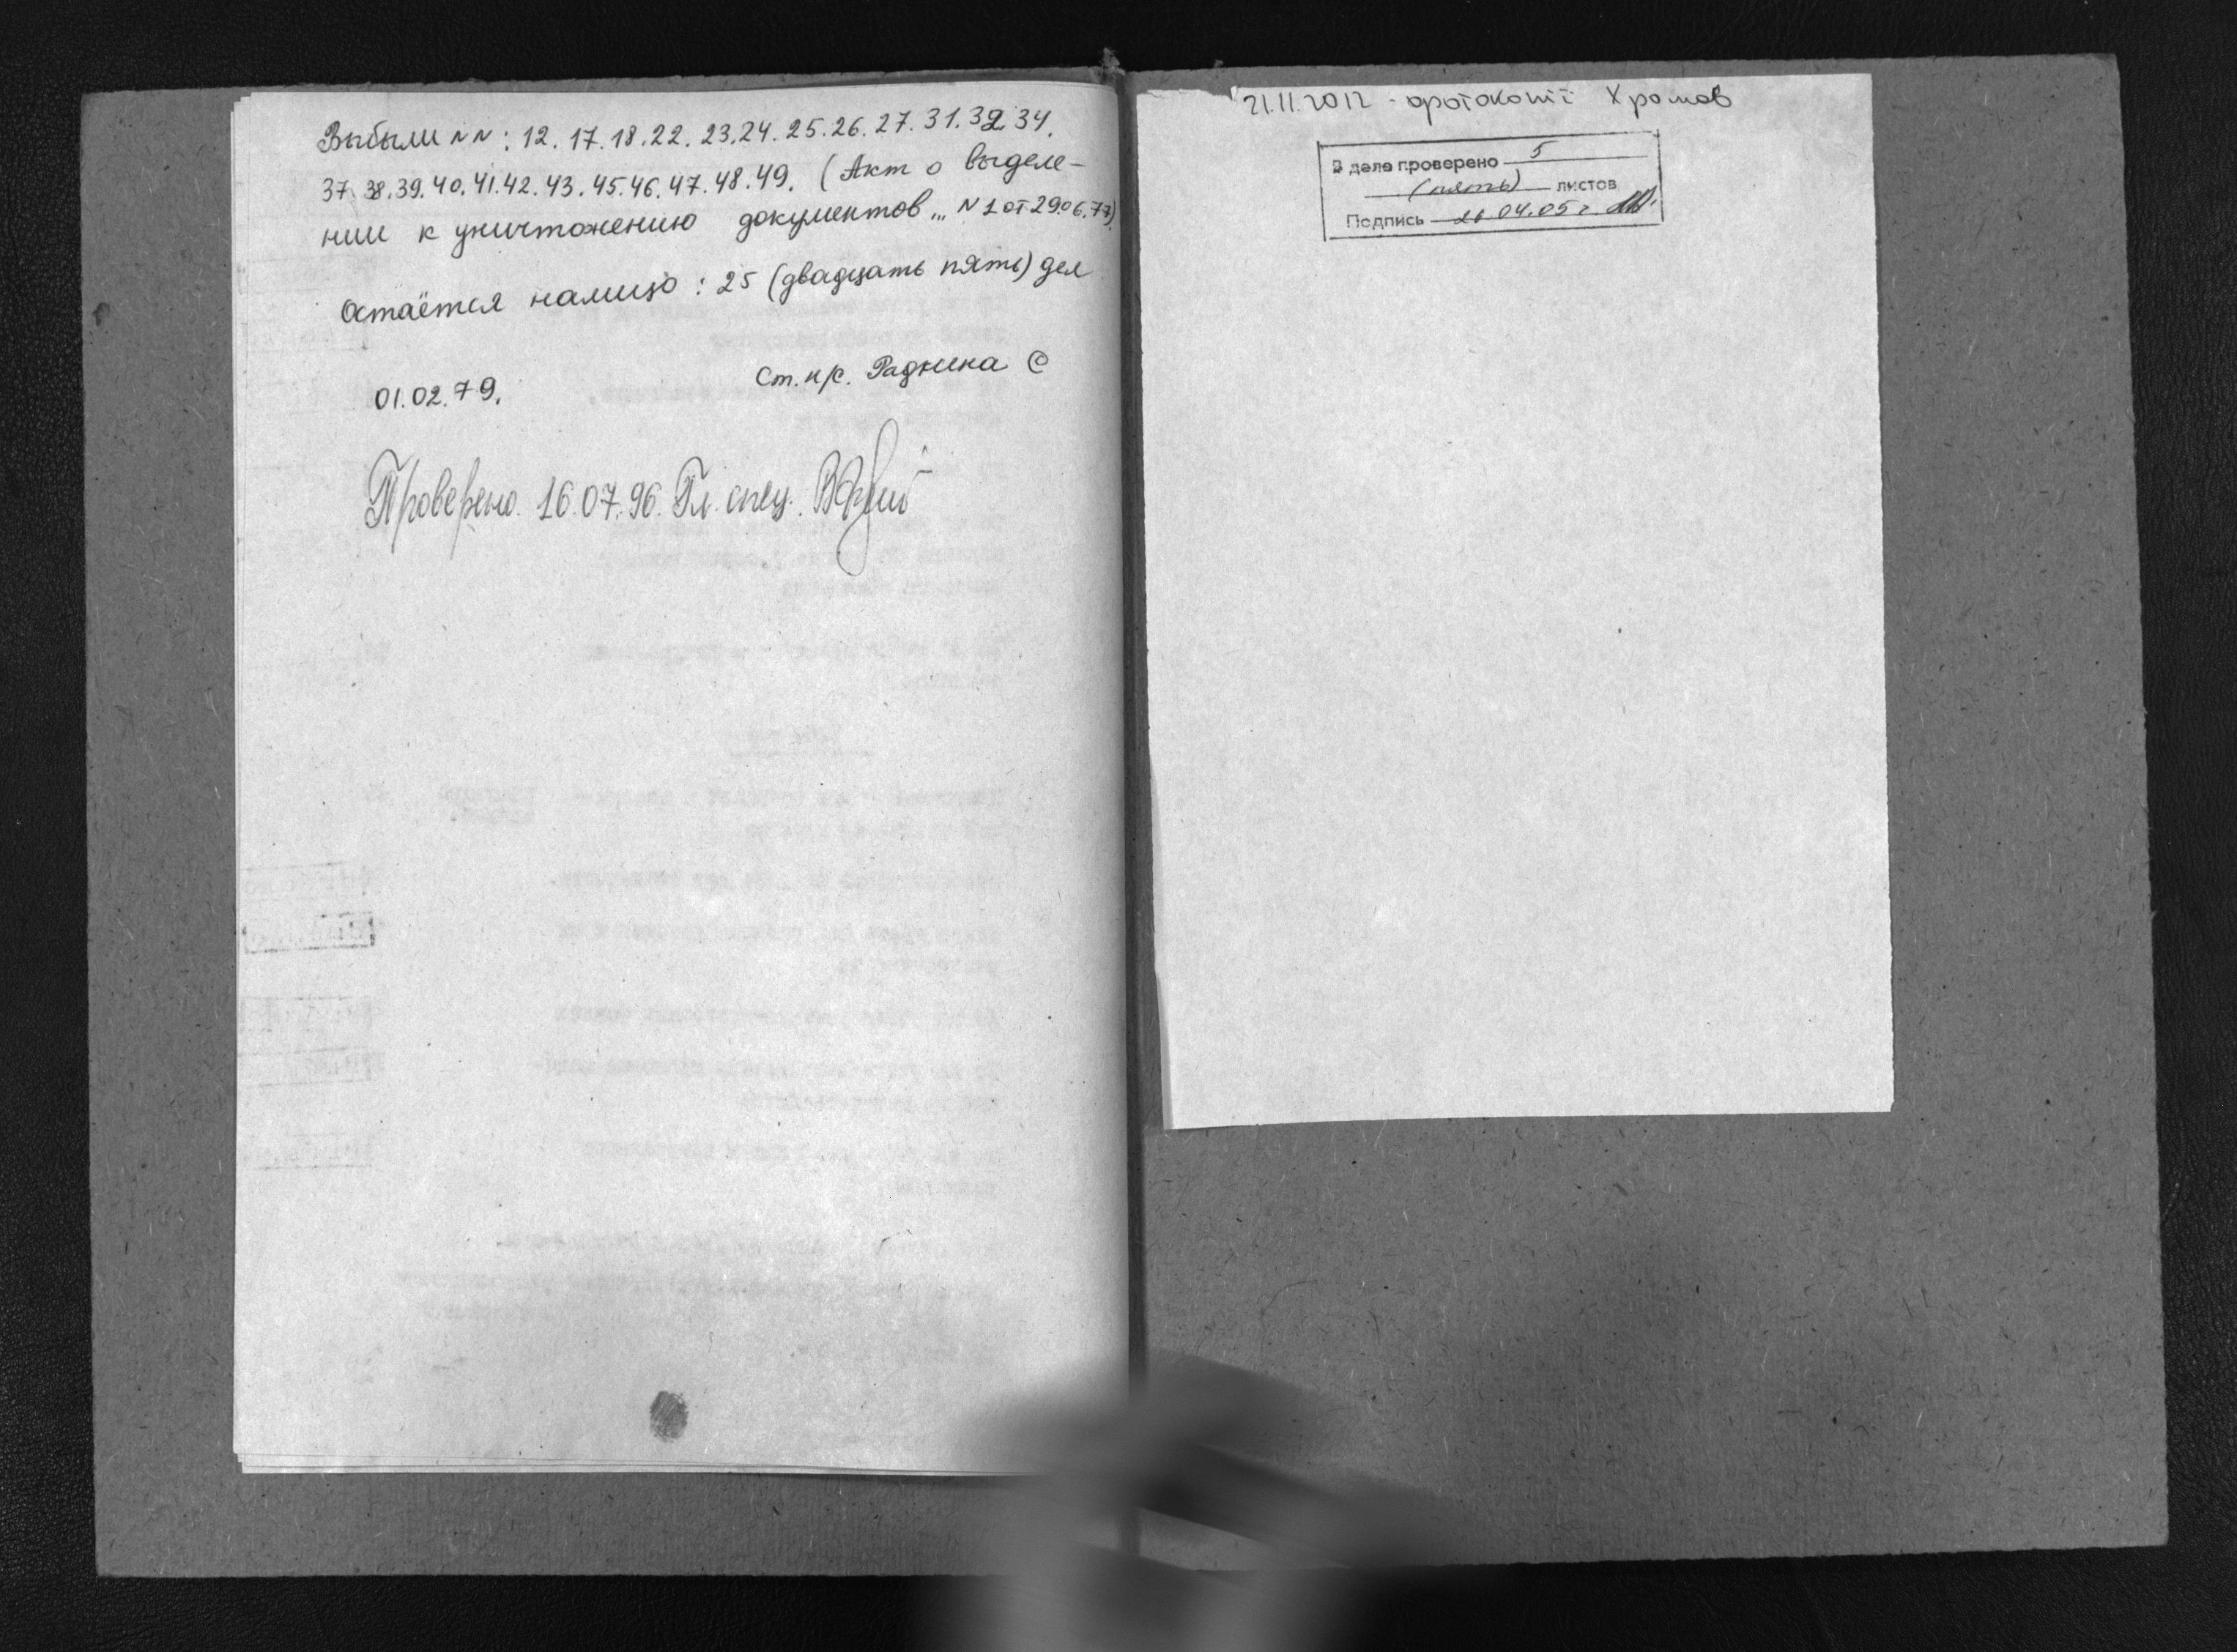 Выбыли NN: 12. 17. 18. 22. 23. 24. 25. 26. 27. 31. 32. 34.
37. 38. 39. 40. 41. 42. 43. 45. 46. 47. 48. 49. (Акт о выделе-
нии к уничтожению документов... N 1 от 29.06.77)
Остаётся налицо: 25 (двадцать пять) дел
Ст. н/с. Раднина С
01.02.79.
Проверено. 16.07.96. Гл. спец.
21.11.2012 - фотокопії Храмов
В деле проверено 5
(пять) листов
Подпись 26.04.05 г.